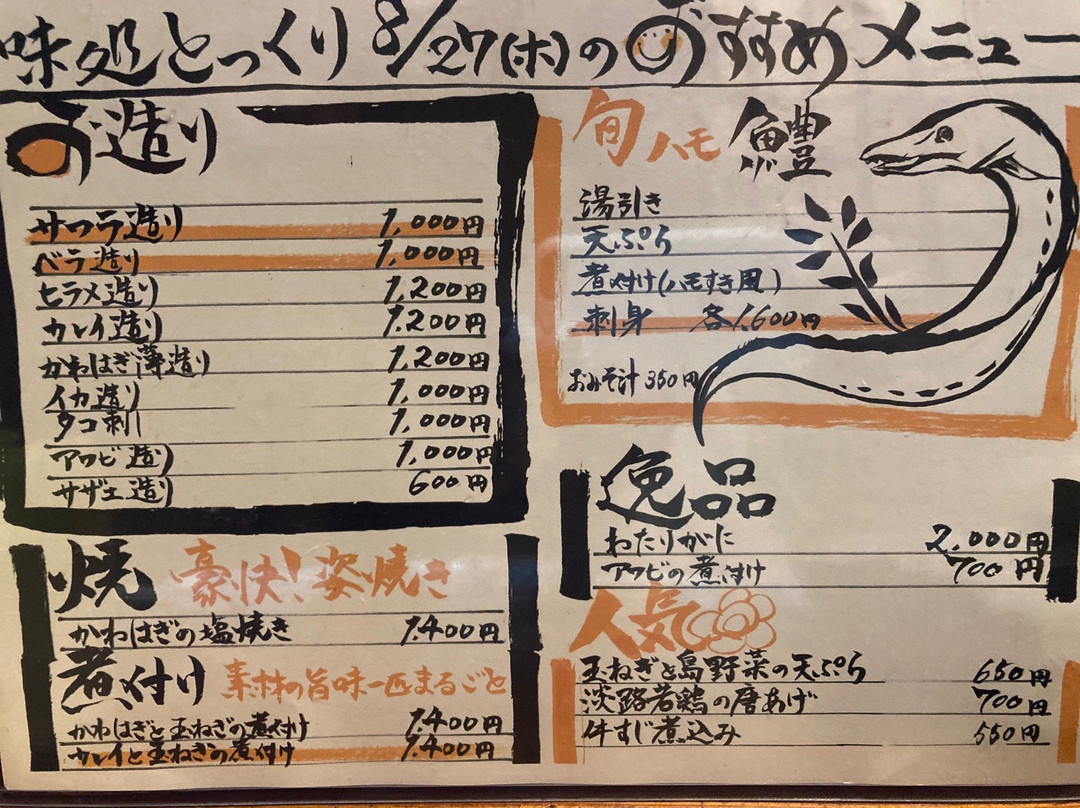 味処とっくり 8/27(木)のおすすめメニュー
お造り
サワラ造り 1,000円
ベラ造り 1,000円
ヒラメ造り 1,200円
カレイ造り 1,200円
かわはぎ薄造り 1,200円
イカ造り 1,000円
タコ刺 1,000円
アワビ造り 1,000円
サザエ造り 600円
焼 豪快!姿焼き
かわはぎの塩焼き 1,400円
煮付け 素材の旨味一匹まるごと
かわはぎと玉ねぎの煮付け 1,400円
カレイと玉ねぎの煮付け 1,400円
旬 ハモ 鱧
湯引き
天ぷら
煮付け(ハモすき風)
刺身 各1,600円
おみそ汁 350円
逸品
わたりがに 2,000円
アワビの煮付け 700円
人気
玉ねぎと島野菜の天ぷら 650円
淡路若鶏の唐あげ 700円
牛すじ煮込み 550円